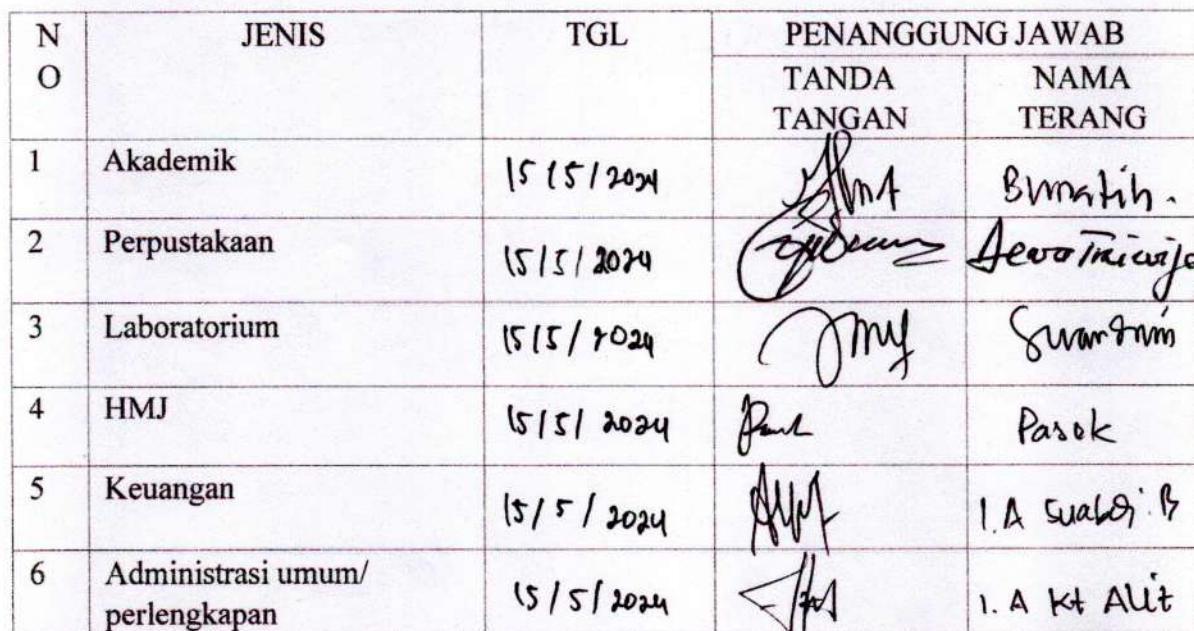 N
O
JENIS
TGL
PENANGGUNG JAWAB
TANDA
TANGAN
NAMA
TERANG
1 Akademik 15/5/2024
2 Perpustakaan 15/5/2024
3 Laboratorium 15/5/2024
4 HMJ 15/5/2024 Pasek
5 Keuangan 15/5/2024 I.A
6 Administrasi umum/
perlengkapan 15/5/2024 I. A Kt Alit